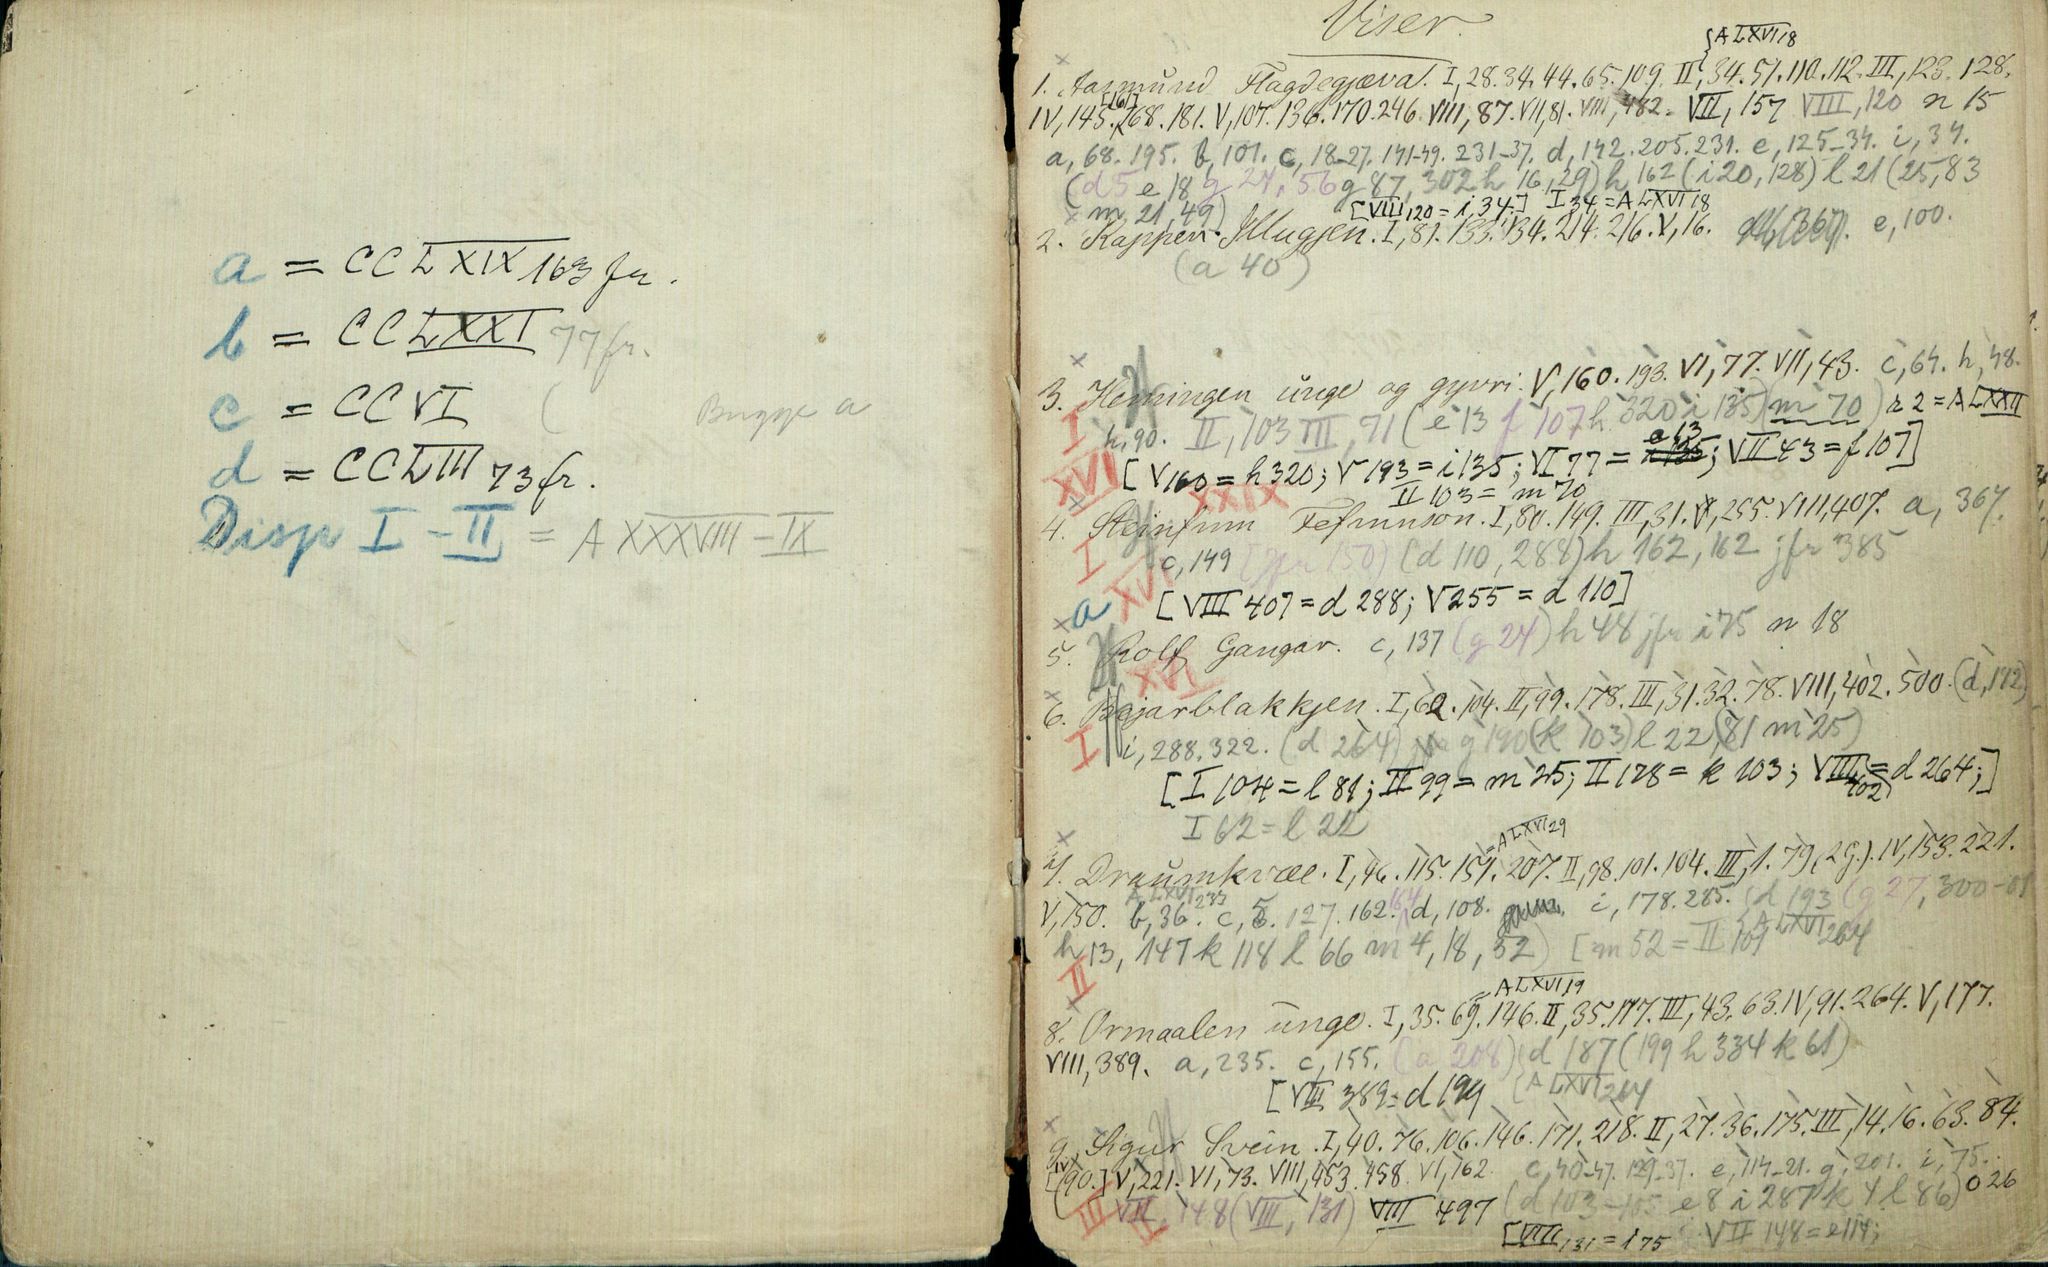 a = CCLXXIX 163 fr.
b = CCLXXXI 77 fr.
c = CCVI ( Bugge a
d = CCLIII 73 fr.
Disp I - II = A XXXVIII - IX
Viser.
{A LXVI 18
1. Aasmund Flagdegjæva. I, 28. 34. 44. 65. 109. II, 34. 57. 110. 112. III, 123. 128.
IV, 145. [161] 168. 181. V, 107. 136. 170. 246. VIII, 87. VII, 81. VIII, 482. VII, 157 VIII, 120 n 15
a, 68. 195. b, 101. c, 18-27. 141-49. 231-37. d, 142. 205. 231. e, 125-34. i, 34.
(d 5 e 18 g 27, 56 g 87, 302 h 16, 29) h 162 (i 20, 128) l 21 (25, 83
m 21, 49) [VIII 120 = i 34.] I 34 = A LXVI 18
2. Kappen Illugjen. I, 81. 133. 134. 214. 216. V, 16. e, 100.
(a 40)
3. Hemingen unge og gyvri. V, 160. 193. VI, 77. VII, 43. c, 64. h, 48.
I h, 90. II, 103 III, 71 (e 13 f 107 h 320 i 135) (m 70) r 2 = A LXXII
XVI [V 160 = h 320; V 193 = i 135; VI 77 = e 13; VII 43 = f 107]
XXIX II 103 = m 70
4. Steinfinn Fefinnson. I, 80. 149. III, 31. V, 255. VIII, 407. a, 367.
I c, 149 (jfr 150) (d 110, 288) h 162, 162 jfr 385
a XVI [VIII 407 = d 288; V 255 = d 110]
5. Rolf Gangar. c, 137 (g 24) h 48 jfr i 75 n 18
XVI
6. Bejarblakkjen. I, 62. 104. II, 99. 178. III, 31. 32. 78. VIII, 402. 500. (d, 172)
I i, 288. 322. (d 264) g 190 (k 103) l 22, (81 m 25)
[I 104 = l 81; II 99 = m 25; II 178 = k 103; VIII 402 = d 264;]
I 62 = l 22
= A LXVI 29
7. Draumkvæe. I, 96. 115. 157. 207. II, 98. 101. 104. III, 1. 79 (2 G.). IV, 153. 221.
A LXVI 233 164
V, 150. b, 36. c, 5. 127. 162. d, 108. i, 178. 285. (d 193 (g 27, 300-01
h 13, 147 k 118 l 66 m 4, 18, 52) [m 52 = II 101 {A LXVI 264
II
= A LXVI 19
8. Ormaalen unge. I, 35. 69. 146. II, 35. 177. III, 43. 63. IV, 91. 264. V, 177.
VIII, 389. a, 235. c, 155. (a 208) (d 187 (199 h 334 k 61)
[VIII 389 = d 199 {A LXVI 264
9. Sigur Svein. I, 40. 76. 106. 146. 171. 218. II, 27. 36. 175. III, 14. 16. 63. 84.
[IV 90.] V, 221. VI, 73. VIII, 453. 458. VI, 162. c, 40-47. 129-37. e, 114-21. g, 201. i, 75.
III VII, 148 (VIII, 131) VIII 497 (d 103-105 e 8 i 287 k 4 l 86) o 26
[VIII 131 = i 75 VII 148 = e 114;